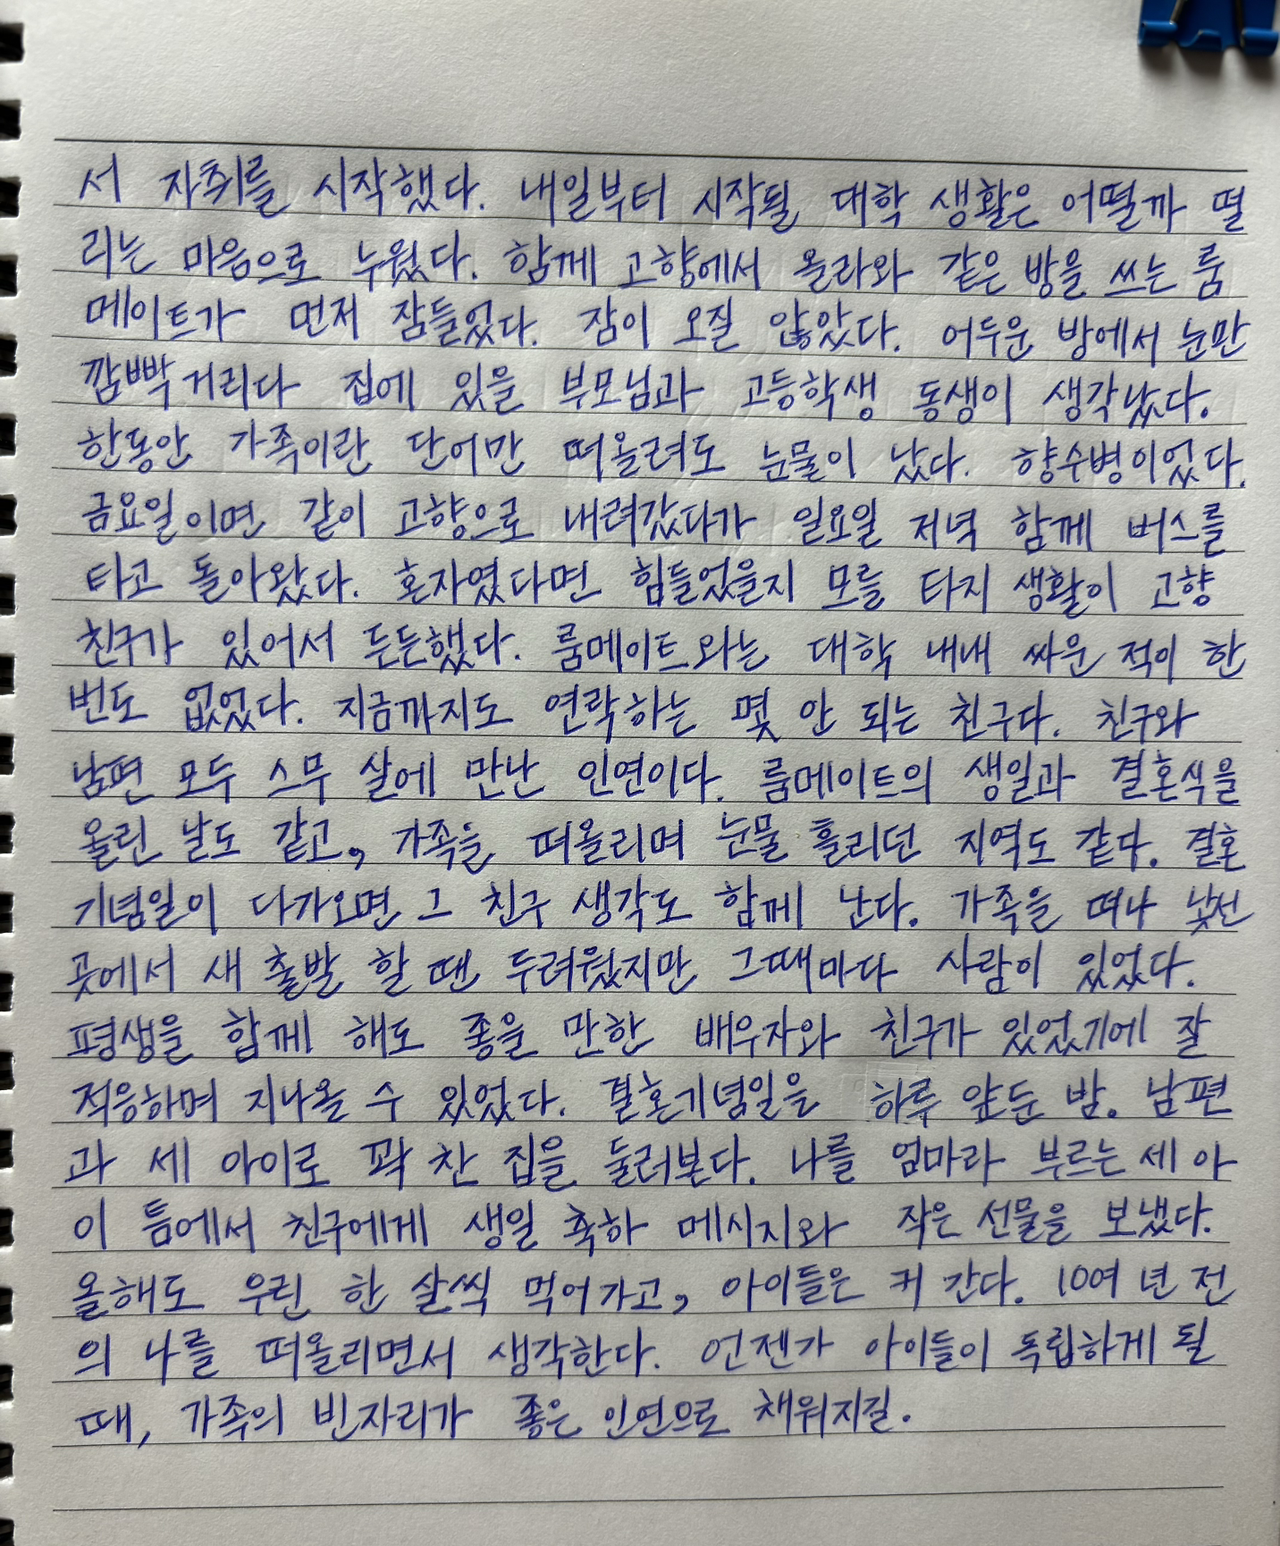 서 자취를 시작했다. 내일부터 시작될 대학 생활은 어떨까 떨
리는 마음으로 누웠다. 함께 고향에서 올라와 같은 방을 쓰는 룸
메이트가 먼저 잠들었다. 잠이 오질 않았다. 어두운 방에서 눈만
깜빡거리다 집에 있을 부모님과 고등학생 동생이 생각났다.
한동안 가족이란 단어만 떠올려도 눈물이 났다. 향수병이었다.
금요일이면 같이 고향으로 내려갔다가 일요일 저녁 함께 버스를
타고 돌아왔다. 혼자였다면 힘들었을지 모를 타지 생활이 고향
친구가 있어서 든든했다. 룸메이트와는 대학 내내 싸운 적이 한
번도 없었다. 지금까지도 연락하는 몇 안 되는 친구다. 친구와
남편 모두 스무 살에 만난 인연이다. 룸메이트의 생일과 결혼식을
올린 날도 같고, 가족을 떠올리며 눈물 흘리던 지역도 같다. 결혼
기념일이 다가오면 그 친구 생각도 함께 난다. 가족을 떠나 낯선
곳에서 새 출발 할 땐 두려웠지만 그때마다 사람이 있었다.
평생을 함께 해도 좋을 만한 배우자와 친구가 있었기에 잘
적응하며 지나올 수 있었다. 결혼기념일을 하루 앞둔 밤. 남편
과 세 아이로 꽉 찬 집을 둘러본다. 나를 엄마라 부르는 세 아
이 틈에서 친구에게 생일 축하 메시지와 작은 선물을 보냈다.
올해도 우린 한 살씩 먹어가고, 아이들은 커 간다. 10여 년 전
의 나를 떠올리면서 생각한다. 언젠가 아이들이 독립하게 될
때, 가족의 빈자리가 좋은 인연으로 채워지길.